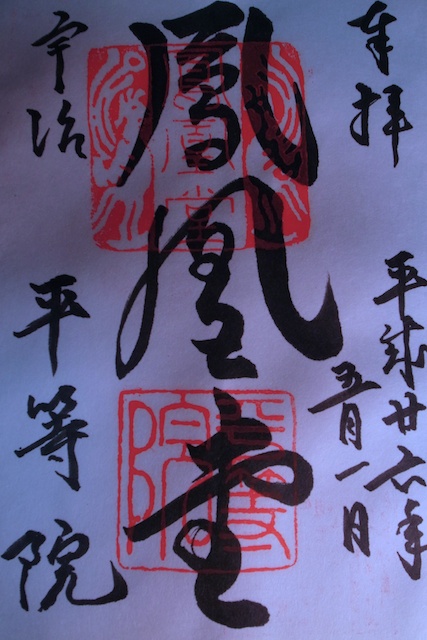 奉拝
平成廿六年
五月一日
鳳凰堂
宇治
平等院
鳳凰堂
平等院